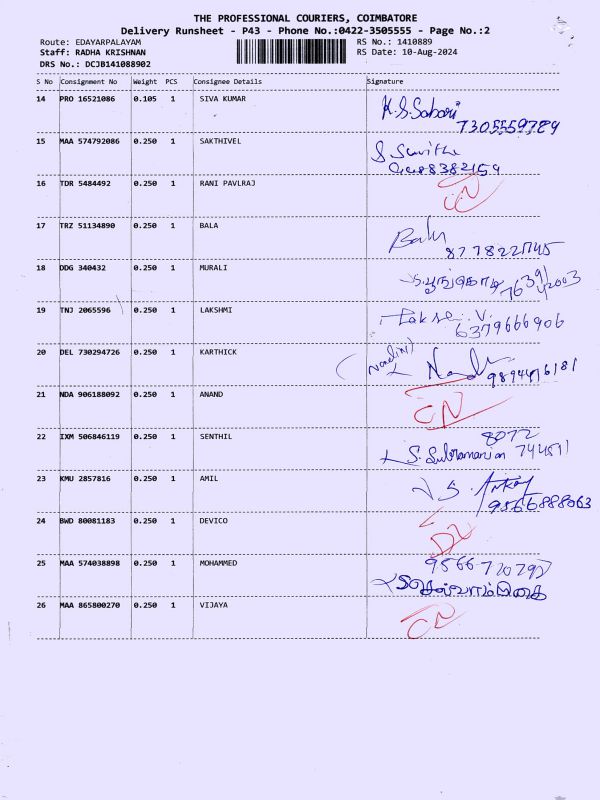 THE PROFESSIONAL COURIERS, COIMBATORE
Delivery Runsheet - P43 - Phone No.:0422-3505555 - Page No.:2
Route: EDAYARPALAYAM RS No.: 1410889
Staff: RADHA KRISHNAN RS Date: 10-Aug-2024
DRS No.: DCJB141088902
S No Consignment No Weight PCS Consignee Details Signature
14 PRO 16521086 0.105 1 SIVA KUMAR K.S.Sabari
7305559789
15 MAA 574792086 0.250 1 SAKTHIVEL
16 TDR 5484492 0.250 1 RANI PAVLRAJ CN
17 TRZ 51134890 0.250 1 BALA Balu
18 DDG 340432 0.250 1 MURALI
19 TNJ 2065596 0.250 1 LAKSHMI
6379666906
20 DEL 730294726 0.250 1 KARTHICK
9894476181
21 NDA 906188092 0.250 1 ANAND CN
22 IXM 506846119 0.250 1 SENTHIL 8072
S. Subramanian 744511
23 KMU 2857816 0.250 1 AMIL
9566888063
24 BWD 80081183 0.250 1 DEVICO DL
25 MAA 574038898 0.250 1 MOHAMMED 9566720797
26 MAA 865800270 0.250 1 VIJAYA CN